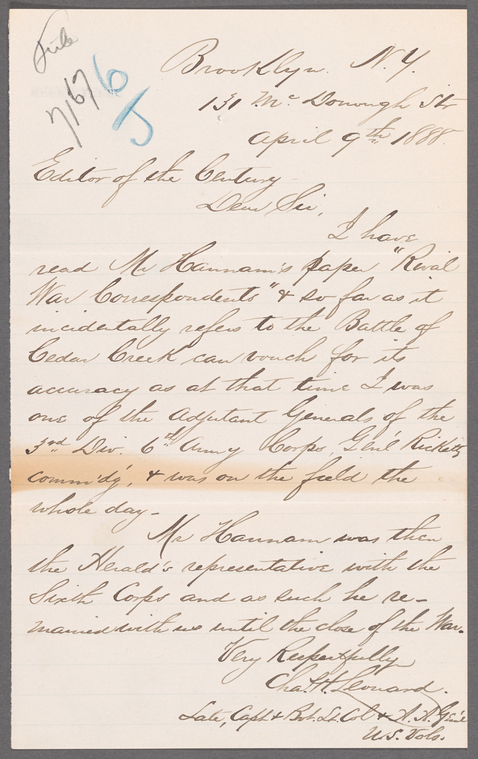 File
7167
6
J
Brooklyn. N.Y.
131 Mc Donough Str
April 9th 1888.
Editor of the Century
Dear Sir,
I have
read Mr Hannam's paper "Rival
War Correspondents" & so far as it
incidentally refers to the Battle of
Cedar Creek can vouch for its
accuracy as at that time I was
one of the Adjutant Generals of the
3rd Div. 6th Army Corps, Gen'l Ricketts
comm'dg', & was on the field the
whole day-
Mr Hannam was then
the Herald's representative with the
Sixth Corps and as such he re-
mained with us until the close of the War.
Very Respectfully
Chas. H. Leonard.
Late, Capt & Bvt. Lt. Col & A. A. Gen'l
U.S. Vols.